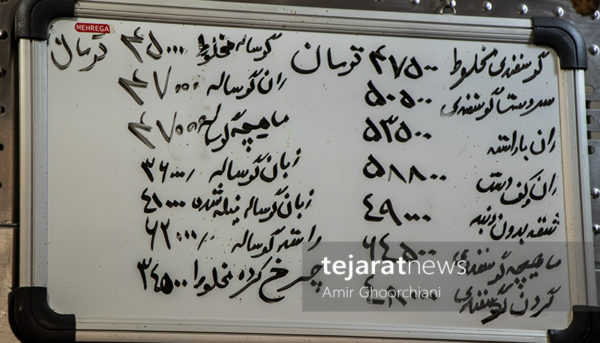 MEHREGAN
گوسفندی مخلوط ۴۷۵۰۰ تومان
سردست گوسفندی ۵۰۵۰۰
ران با راسته ۵۳۵۰۰
ران و کف دست ۵۸۸۰۰
شقه بدون دنبه ۴۹۰۰۰
ماهیچه گوسفندی ۶۴۵۰۰
گردن گوسفندی ۴۸۹۰۰
گوساله مخلوط ۴۵۰۰۰ تومان
ران گوساله ۴۷۰۰۰
ماهیچه گوساله ۴۷۰۰۰
زبان گوساله ۳۶۰۰۰
زبان گوساله تیله شده ۴۱۰۰۰
راسته گوساله ۶۲۰۰۰
چرخ کرده مخلوط ۳۴۵۰۰
tejaratnews
Amir Ghoorchiani